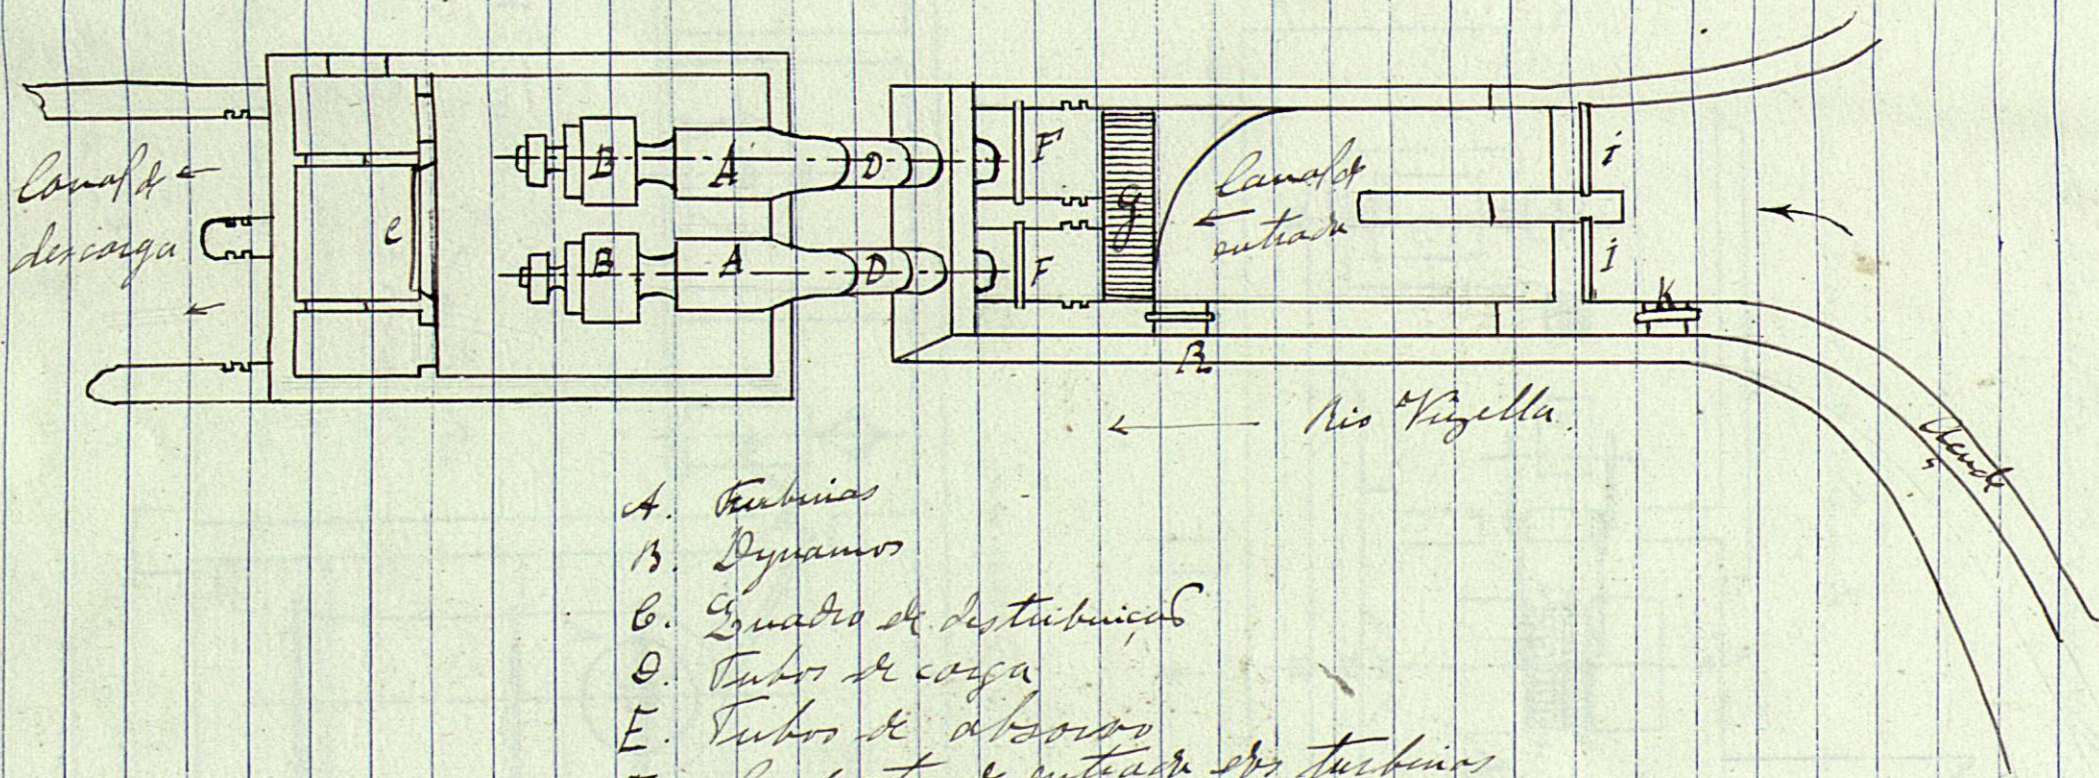 Canal de
descarga
C
B
A
D
B
A
D
F
F
g
Canal de
entrada
i
i
K
R
Rio Vizella.
Açude
A. Turbinas
B. Dynamos
C. Quadro de distribuição
D. Tubos de carga
E. Tubos de
F. de entrada das turbinas